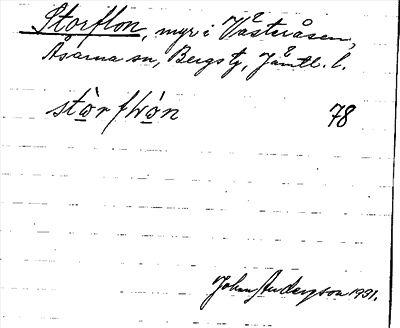 Storflon, myr i Västeråsen,
Åsarna sn, Bergs tg, Jämtl. l.
stòr flón 78
Johan Anderson 1931.